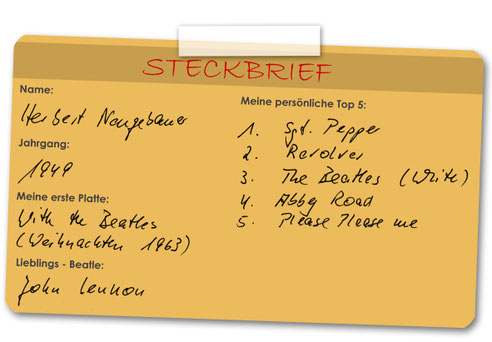 STECKBRIEF
Name:
Herbert Neugebauer
Jahrgang:
1949
Meine erste Platte:
With the Beatles
(Weihnachten 1963)
Lieblings - Beatle:
John Lennon
Meine persönliche Top 5:
1. Sgt. Pepper
2. Revolver
3. The Beatles (White)
4. Abby Road
5. Please Please me